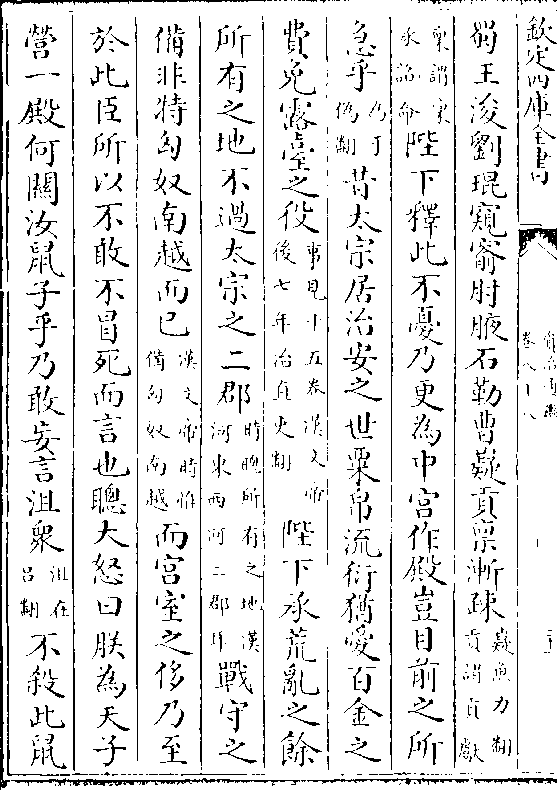 欽定四庫全書
資治通鑑
卷八十八
蜀王浚劉琨窺窬肘腋石勒曹嶷貢禀漸疎嶷魚力翻貢謂貢獻
禀謂禀承詔命陛下釋此不憂乃更為中宫作殿豈目前之所
急乎為于偽翻昔太宗居治安之世粟帛流衍猶愛百金之
費免露臺之役事見十五卷漢文帝後七年治直吏翻陛下承荒亂之餘
所有之地不過太宗之二郡時聰所有之地漢河東西河二郡耳戰守之
備非特匈奴南越而已漢文帝時惟備匈奴南越而宫室之侈乃至
於此臣所以不敢不冒死而言也聰大怒曰朕為天子
營一殿何關汝鼠子乎乃敢妄言沮衆沮在吕翻不殺此鼠